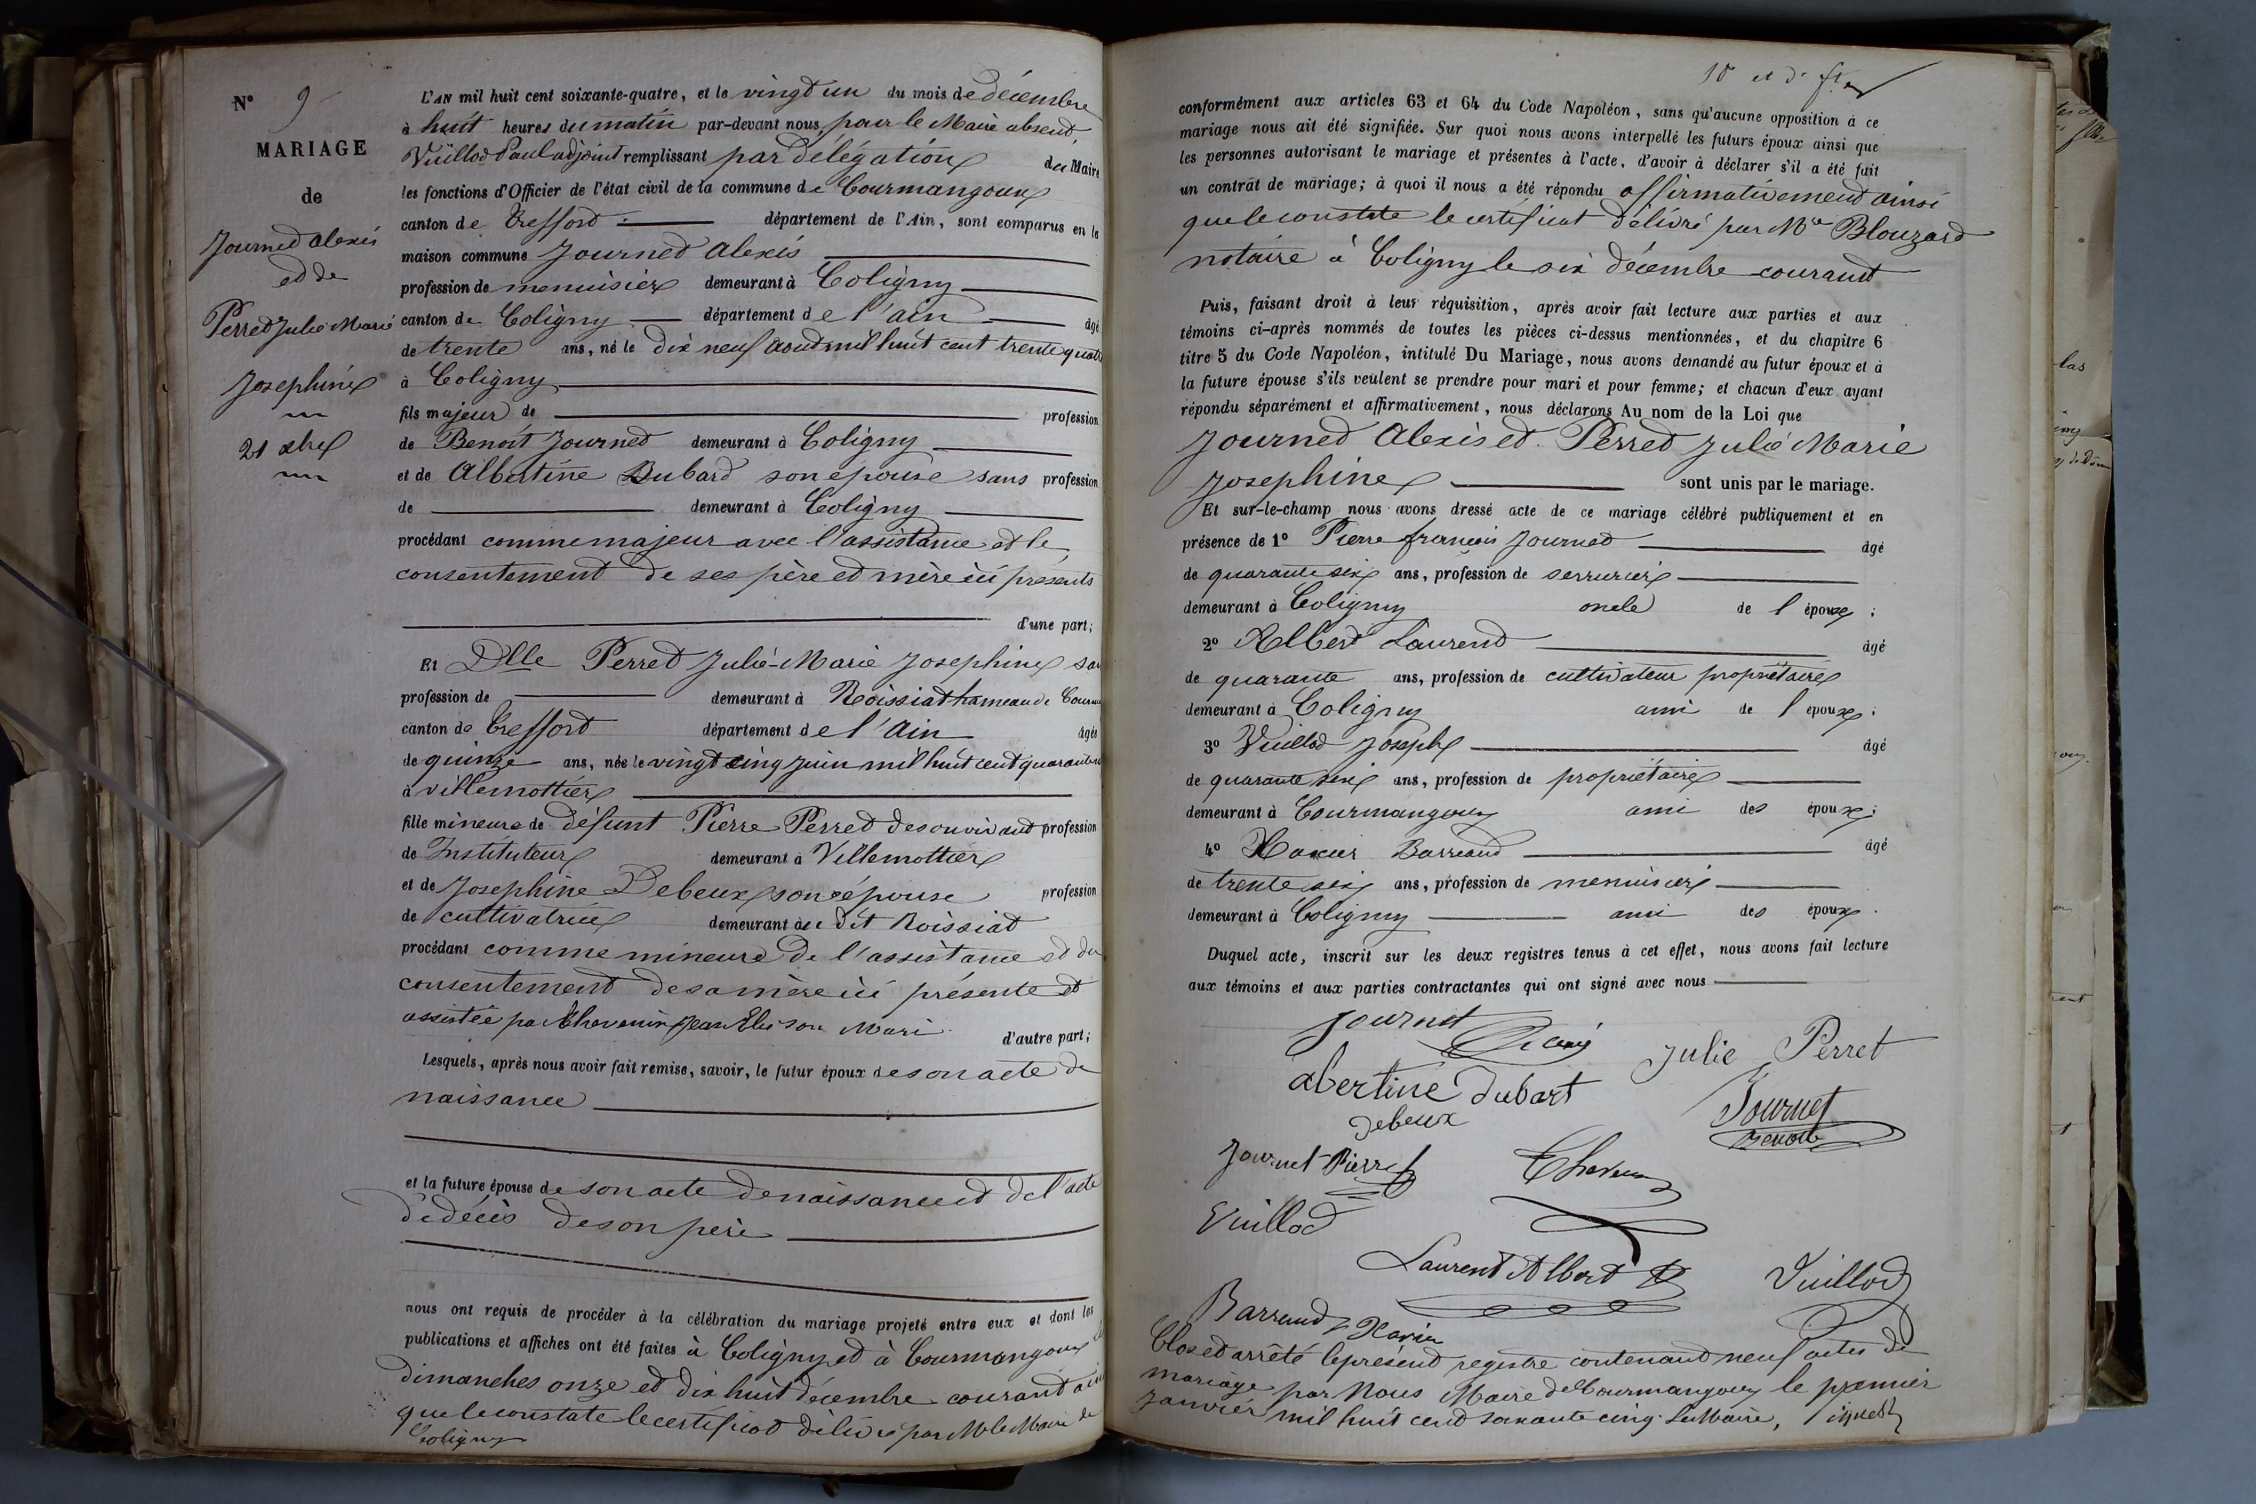 N° 9
MARIAGE
de
Journet Alexis
et de
Perret Julie Marie
Josephine
21 xbre
L'AN mil huit cent soixante-quatre, et le vingt un du mois de décembre
à huit heures du matin par-devant nous, pour le Maire absent
Vuillod Paul adjoint remplissant par délégation du Maire
les fonctions d'Officier de l'état civil de la commune de Courmangoux
canton de Treffort département de l'Ain, sont comparus en la
maison commune Journet Alexis
profession de menuisier demeurant à Coligny
canton de Coligny département de l'ain âgé
de trente ans, né le dix neuf aout mil huit cent trente quatre
à Coligny
fils majeur de profession
de Benoit Journet demeurant à Coligny
et de Albertine Dubard son épouse sans profession
de demeurant à Coligny
procédant comme majeur avec l'assistance et le
consentement de ses père et mère ici présents
d'une part;
Et Dlle Perret Julie-Marie Josephine
profession de demeurant à Roissiat hameau de
canton de Treffort département de l'Ain âgée
de quinze ans, née le vingt cinq juin mil huit cent
à Villemottier
fille mineure de défunt Pierre Perret de son vivant profession
de Instituteur demeurant à Villemottier
et de Josephine Debeux son épouse profession
de cultivatrice demeurant au dit Roissiat
procédant comme mineure de l'assistance et du
consentement de sa mère ici présente et
assistée par Thevenin Jean Elie son Mari d'autre part;
Lesquels, après nous avoir fait remise, savoir, le futur époux de son acte de
naissance
et la future épouse de son acte de naissance et de l'acte
de décès de son père
nous ont requis de procéder à la célébration du mariage projeté entre eux et dont les
publications et affiches ont été faites à Coligny et à Courmangoux
dimanches onze et dix huit décembre courant ainsi
que le constate le certificat délivré par M. le Maire de
Coligny
conformément aux articles 63 et 64 du Code Napoléon, sans qu'aucune opposition à ce
mariage nous ait été signifiée. Sur quoi nous avons interpellé les futurs époux ainsi que
les personnes autorisant le mariage et présentes à l'acte, d'avoir à déclarer s'il a été fait
un contrat de mariage; à quoi il nous a été répondu affirmativement ainsi
que le constate le certificat délivré par Me Blouzard
notaire à Coligny le six décembre courant
Puis, faisant droit à leur réquisition, après avoir fait lecture aux parties et aux
témoins ci-après nommés de toutes les pièces ci-dessus mentionnées, et du chapitre 6
titre 5 du Code Napoléon, intitulé Du Mariage, nous avons demandé au futur époux et à
la future épouse s'ils veulent se prendre pour mari et pour femme; et chacun d'eux ayant
répondu séparément et affirmativement, nous déclarons Au nom de la Loi que
Journet Alexis et Perret Julie Marie
Josephine sont unis par le mariage.
Et sur-le-champ nous avons dressé acte de ce mariage célébré publiquement et en
présence de 1° Pierre françois Journet âgé
de quarante six ans, profession de serrurier
demeurant à Coligny oncle de l'époux;
2° Albert Laurent âgé
de quarante ans, profession de cultivateur propriétaire
demeurant à Coligny ami de l'époux;
3° Vuillod Joseph âgé
de quarante six ans, profession de propriétaire
demeurant à Courmangoux ami des époux;
4° Xavier Barraud âgé
de trente six ans, profession de menuisier
demeurant à Coligny ami des époux.
Duquel acte, inscrit sur les deux registres tenus à cet effet, nous avons fait lecture
aux témoins et aux parties contractantes qui ont signé avec nous
Journet
Julie Perret
abertine dubart
debeux
Journet
Benoit
Journet Pierre
Vuillod
Laurent Albert
Vuillod
Barraud Xavier
Clos et arrêté le présent registre contenant neuf actes de
mariage par Nous Maire de Courmangoux le premier
janvier mil huit cent soixante cinq. Le Maire,